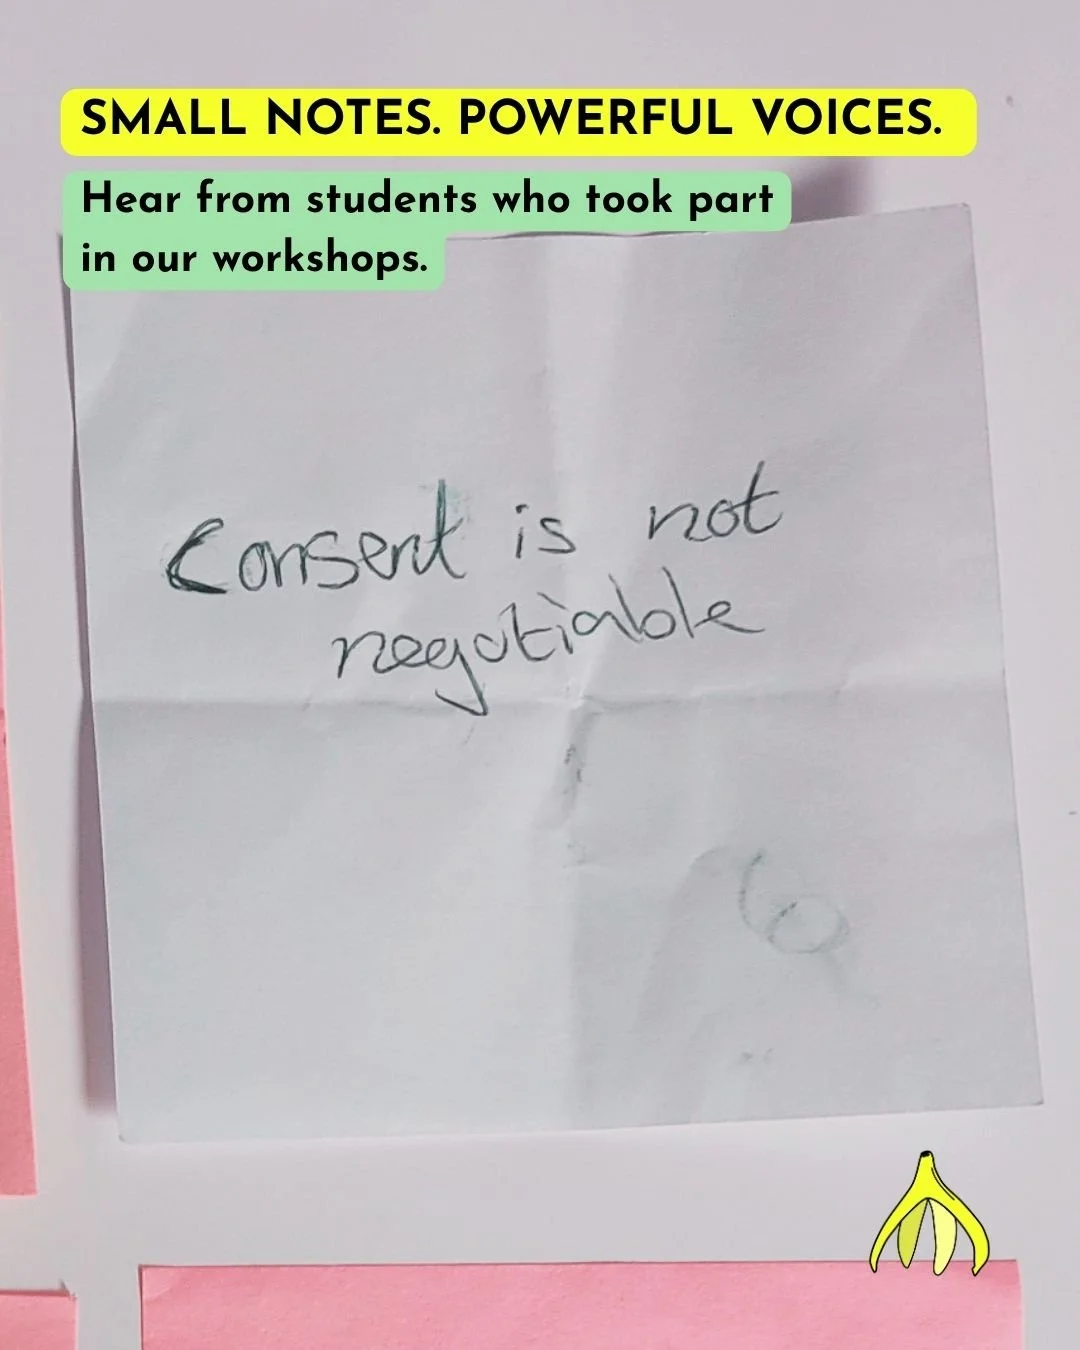 SMALL NOTES. POWERFUL VOICES.
Hear from students who took part
in our workshops.
Consent is not
negotiable